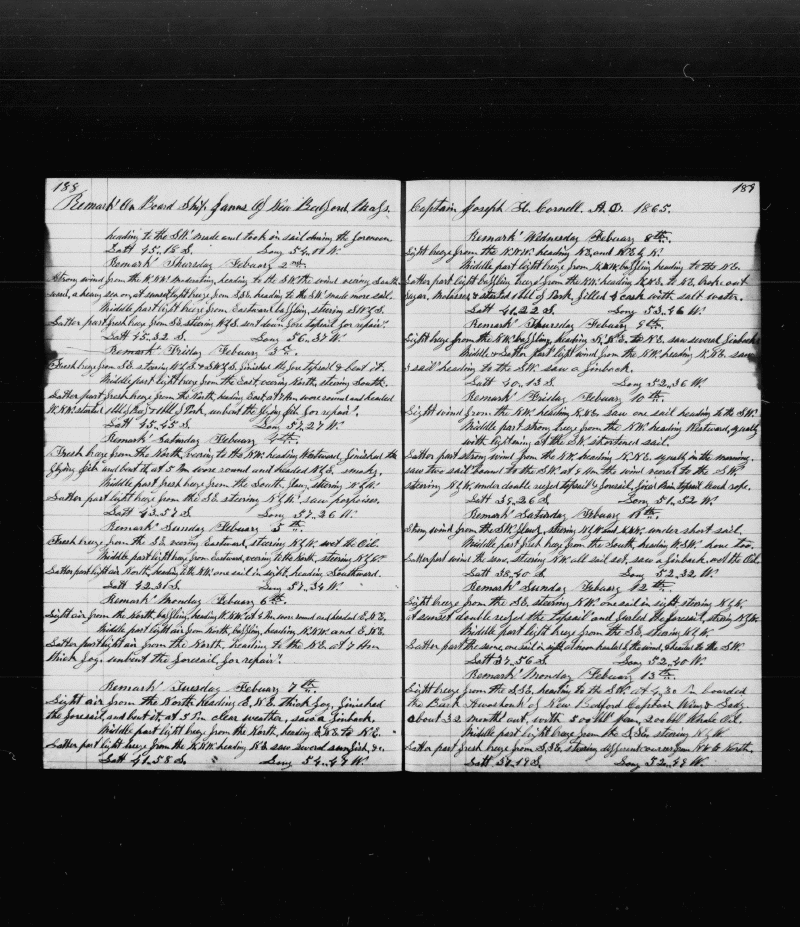 188
Remark's On Board Ship James Of New Bedford, Mass.
heading to the SW. made and took in sail during the forenoon
Latt 45..18 S. Long 54..04 W.
Remark's Thursday Febuary 2nd.
Strong wind from the W.N.W. Moderating, heading to the SW. the wind veering South
ward, a heavy sea on, at sunset light breeze from S.S.E. heading to the SW. made more sail.
Middle part light breeze from Eastward baffling, steering
Latter part fresh breeze from SE. steering sent down fore topsail for repair's.
Latt 45..32 S. Long 56..37 W.
Remark's Friday Febuary 3rd.
Fresh breeze from SE. steering finished the fore topsail & bent it.
Middle part light breeze from the East veering North, steering South.
Latter part fresh breeze from the North, heading East, at 7 Am wore round and headed
W.N.W. started 1 bbl of Beef & 1 bbl of Pork, unbent the flying Jib for repair's.
Latt 45..45 S. Long 57..27 W.
Remark's Saturday Febuary 4th.
Fresh breeze from the North, veering to the NW. heading Westward, finished the
flying Jib and bent it, at 5 Pm wore round and headed smoky.
Middle part fresh breeze from the South, steering
Latter part light breeze from the SE steering saw porpoises.
Latt 43..57 S Long 57..26 W.
Remark's Sunday Febuary 5th.
Fresh breeze from the SE veering Eastward, steering wet the Oil.
Middle part light breeze from Eastward, veering to the North, steering
Latter part light air North, heading to the NW. one sail in sight heading Southward.
Latt 42..31 S. Long 57..34 W.
Remark's Monday Febuary 6th.
Light air from the North, baffling, heading at 4 Pm wore round and headed E.N.E.
Middle part light air from North, baffling, heading N.N.W. and E.N.E.
Latter part light air from the North, heading to the NE. at 7 Am
thick fog. unbent the foresail for repair's.
Remark's Tuesday Febuary 7th.
Light air from the North heading E.N.E. thick fog, finished
the foresail, and bent it, at 5 Pm clear weather, saw a finback.
Middle part light breeze from the North, heading E.N.E. to N.E.
Latter part light breeze from the N.N.W. heading N.E. saw several sunfish, &c.
Latt 41..58 S. Long 54..49 W.
189
Captain Joseph H. Cornell. A.D. 1865.
Remark's Wednesday Febuary 8th.
Light breeze from the N.N.W. heading NE. and
Middle part light breeze from N.N.W. baffling heading to the NE.
Latter part light baffling breeze's from the NW. heading N.N.E. to NE. broke out
sugar, Molasses & started 1 bbl of Pork, filled cask with salt water.
Latt 41..22 S. Long 53..46 W.
Remark's Thursday Febuary 9th.
Light breeze from the NW. baffling, heading N.N.E. to NE. saw several finbacks
Middle & Latter part light wind from the NW. heading N.NE. saw
sail heading to the SW. saw a finback.
Latt 40..13 S. Long 52..36 W.
Remark's Friday Febuary 10th.
Light wind from the NW. heading N.NE. saw one sail heading to the SW.
Middle part strong breeze from the NW. heading Westward, squally
with lightning at the SW. shortened sail.
Latter part strong wind from the NW. heading N.N.E. squally in the morning.
saw two sail bound to the SW. at 9 Am the wind veered to the SW.
steering under double reefed topsails & foresail,
Latt 39..26 S. Long 51..52 W.
Remark's Saturday Febuary 11th.
Strong wind from the SW. steering and N.NW. under short sail.
Middle part fresh breeze from the South, heading W.SW. wore too.
Latter part wind the same, steering NW. all sail set, saw a finback, wet the Oil.
Latt 38..40 S. Long 52..32 W.
Remark's Sunday Febuary 12th.
Light breeze from the SE. steering NW. one sail in sight steering
At sunset double reefed the topsails and furled the foresail,
Middle part light breeze from the SE, steering
Latter part the same, one sail in sight, at noon hauled by the wind & headed to the SW.
Latt 37..56 S Long 52..40 W.
Remark's Monday Febuary 13th.
Light breeze from the S.S.E. heading to the SW. at 4.30 Pm boarded
the Bark Awashonks of New Bedford Captain Wing & Lady
About 32 months out, with 500 bbl Sperm, 200 bbl Whale Oil.
Middle part light breeze from the S.SE. steering
Latter part fresh breeze from S.SE. steering different courses from NW to North.
Latt 37..19 S. Long 52..49 W.